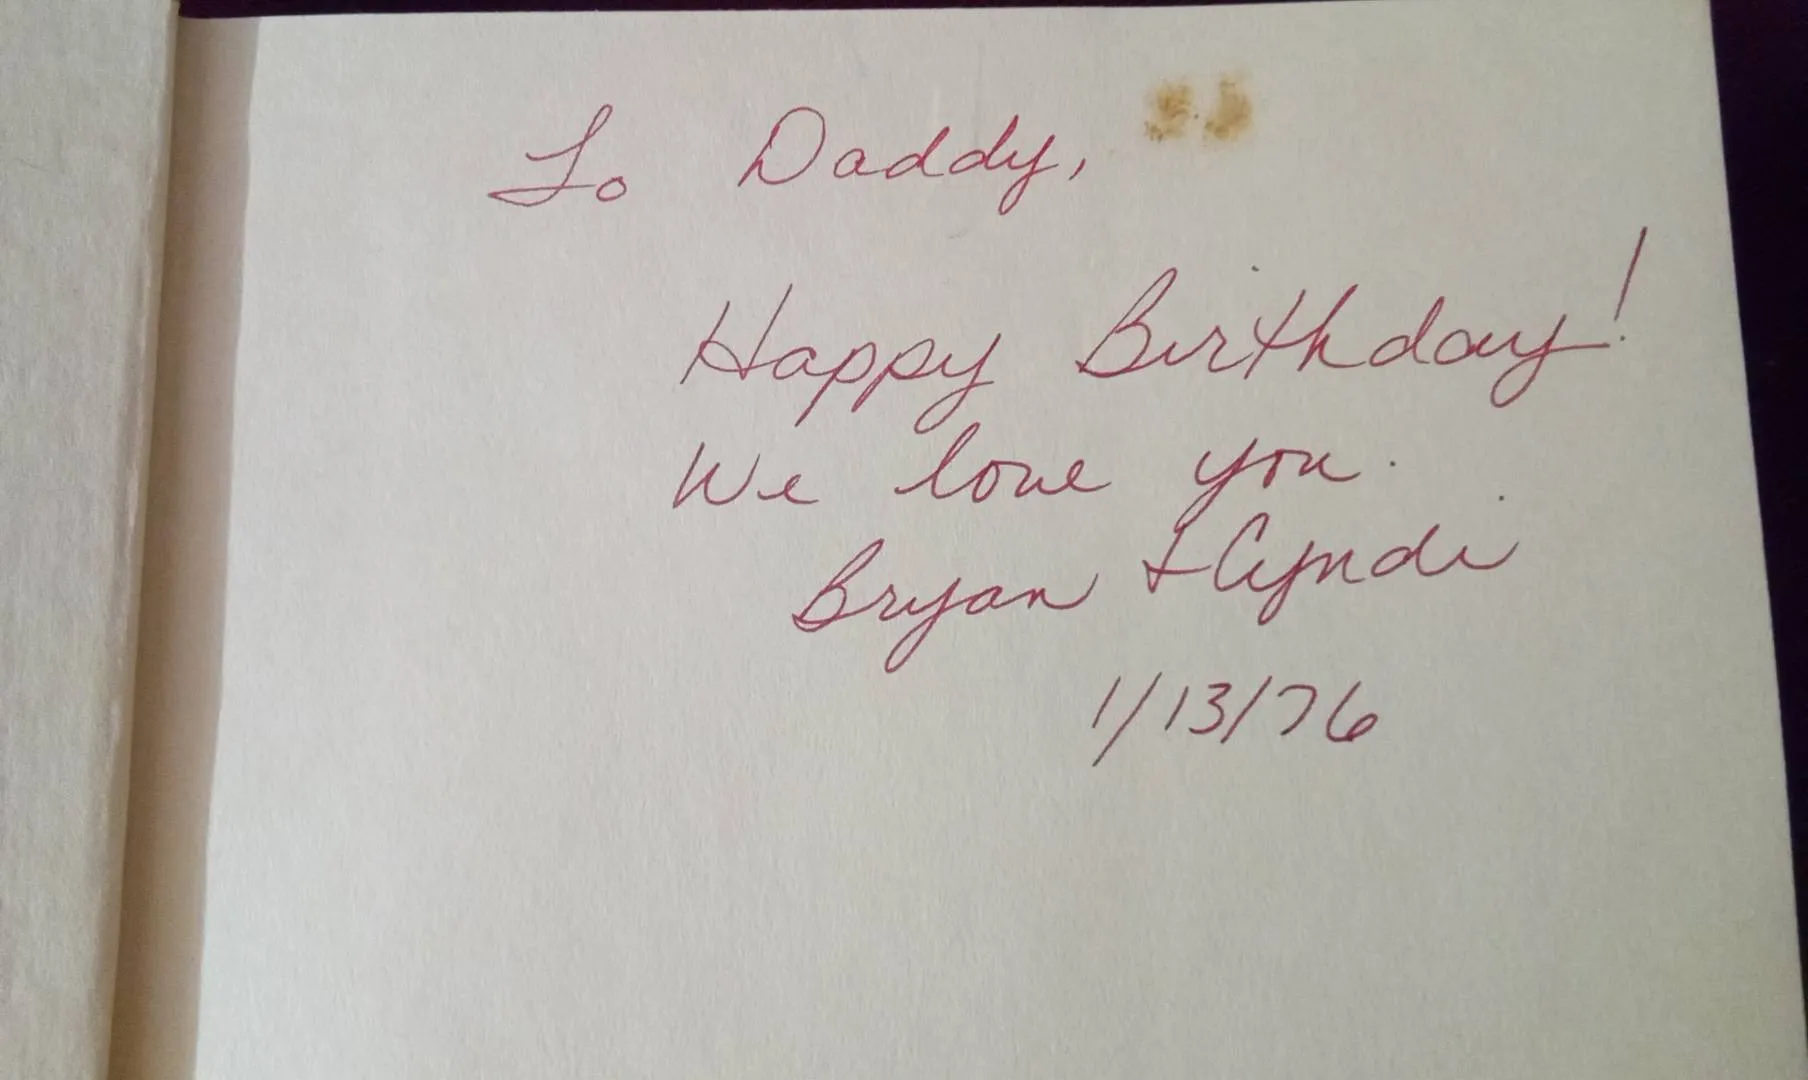 To Daddy,
Happy Birthday!
We love you.
Bryan & Cyndi
1/13/76